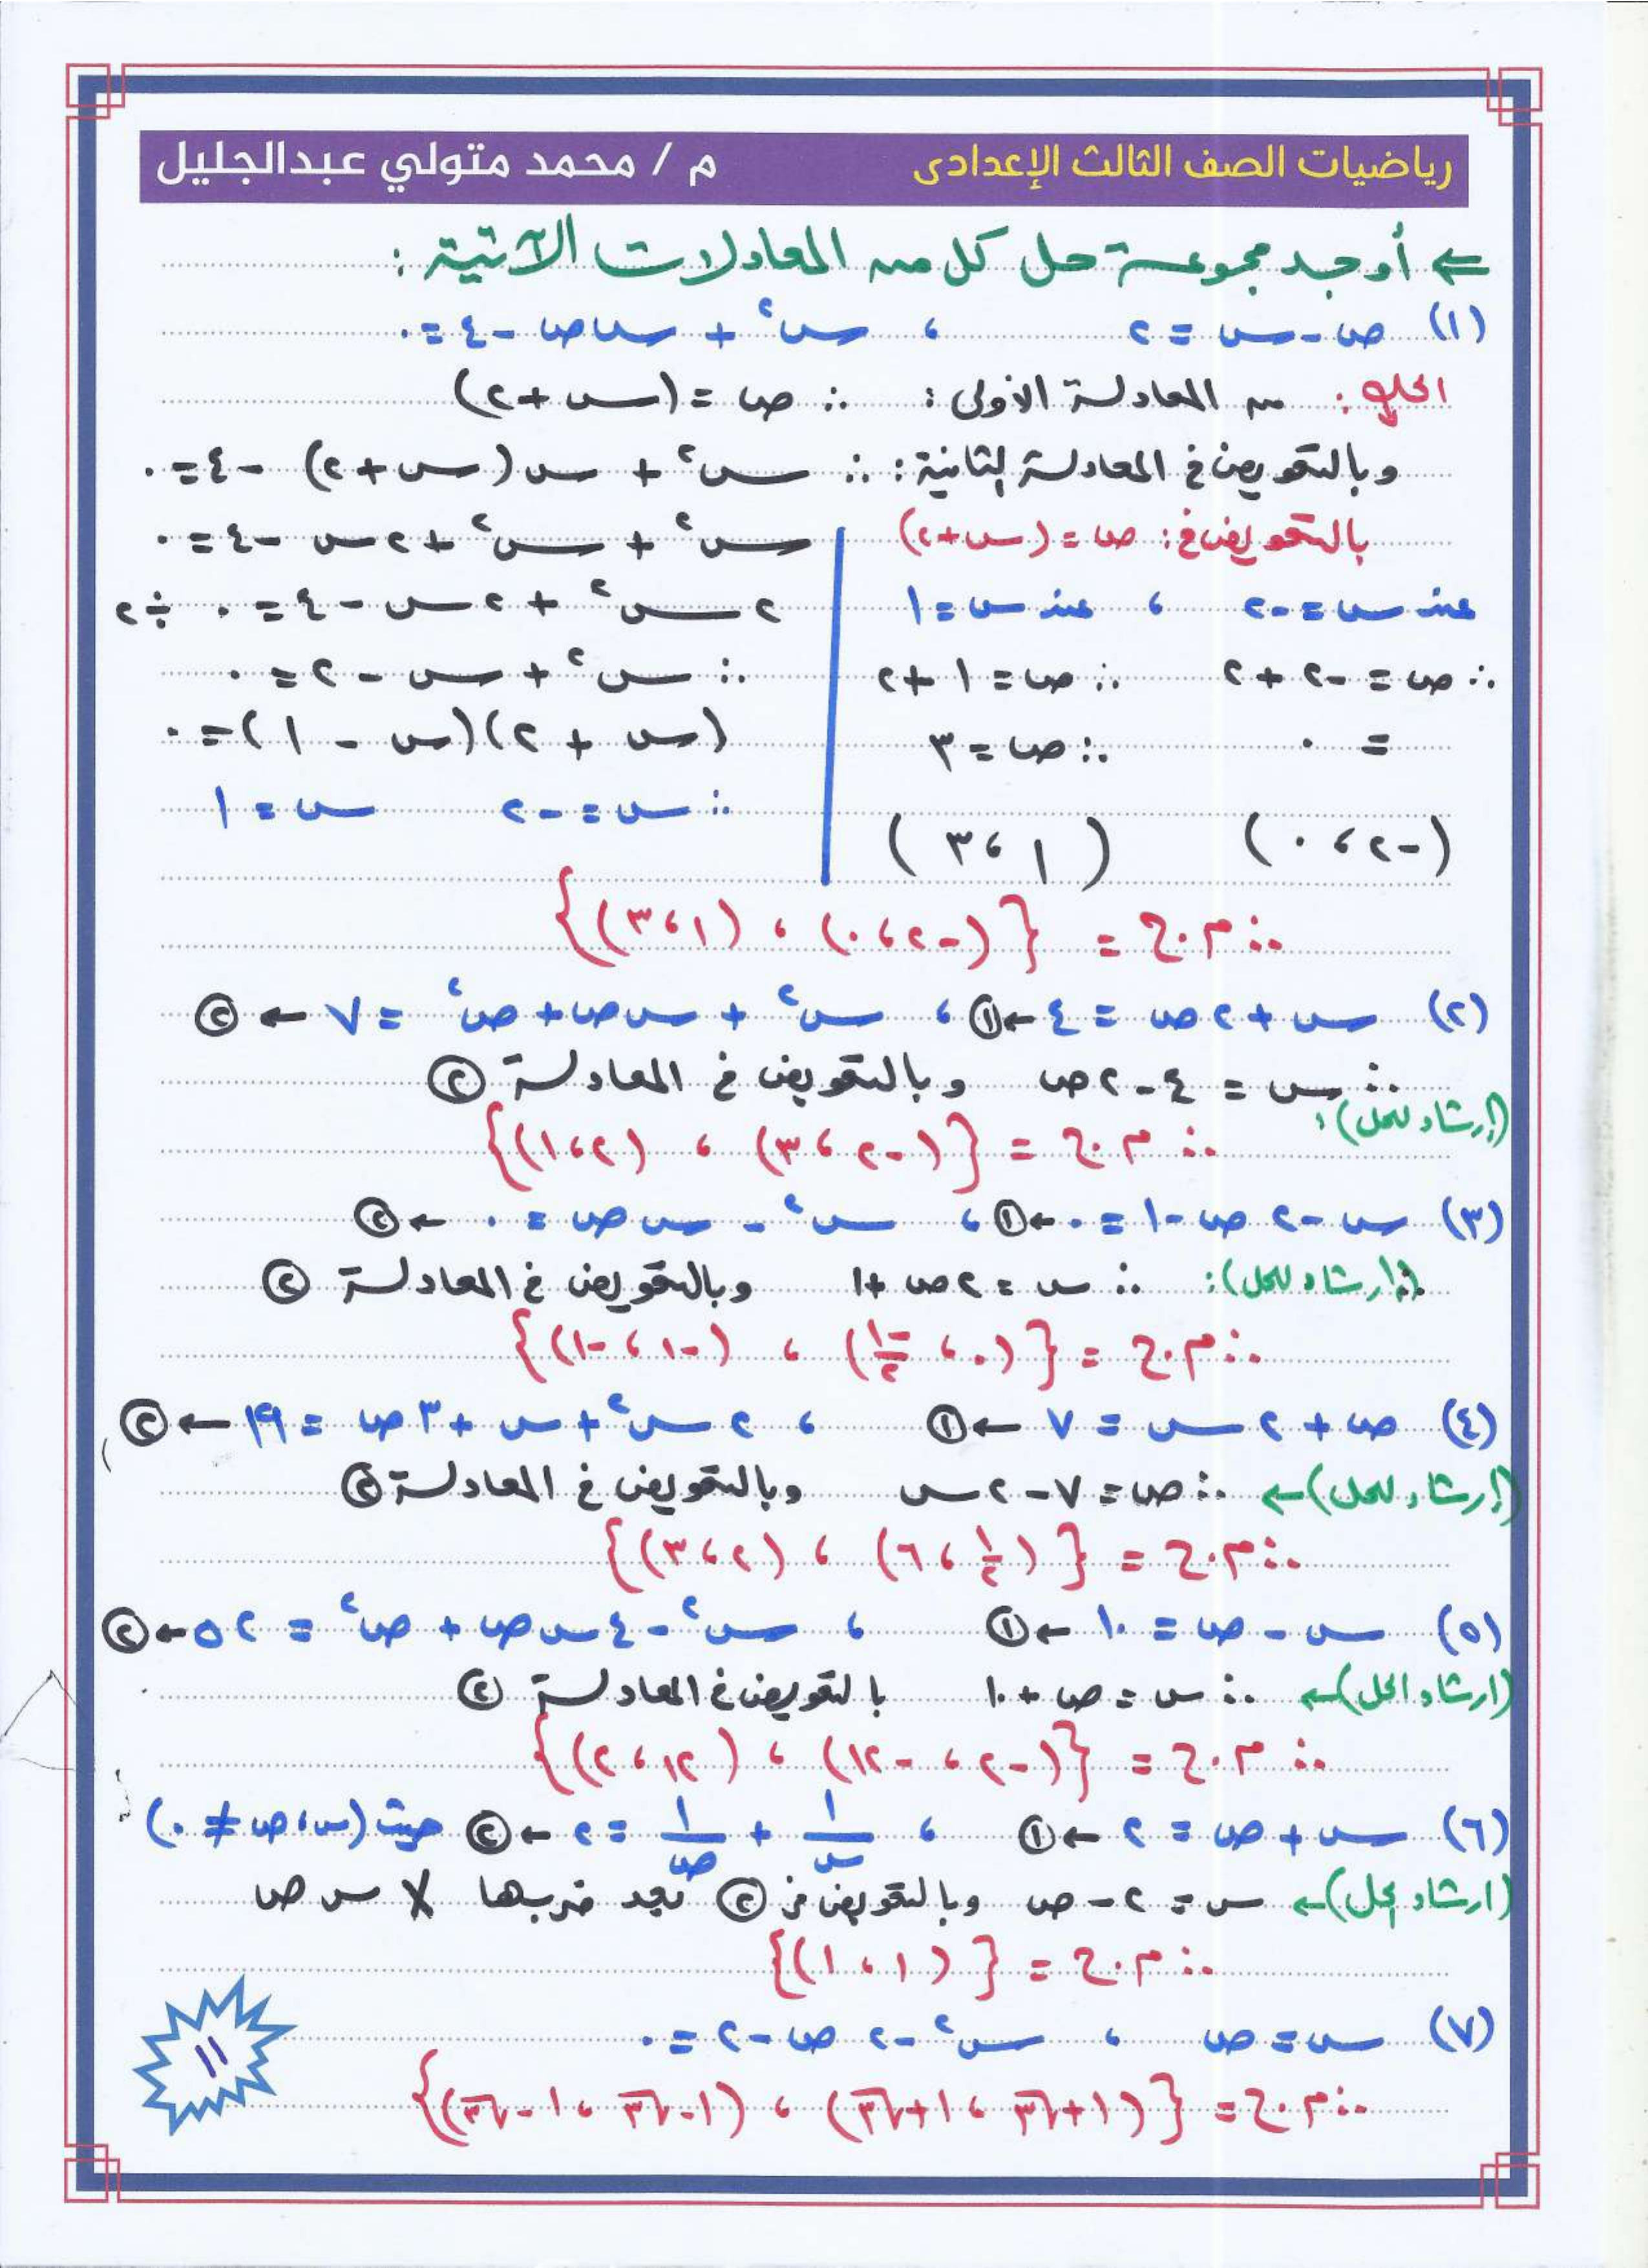 رياضيات الصف الثالث الإعدادى م / محمد متولي عبدالجليل
⇐ أوجد مجموعة حل كل من المعادلات الآتية :
(١) ص - س = ٢ ، س² + س ص - ٤ = ٠
الحل : من المعادلة الأولى : ∴ ص = (س + ٢)
وبالتعويض في المعادلة الثانية : ∴ س² + س (س + ٢) - ٤ = ٠
بالتعويض في : ص = (س + ٢) س² + س² + ٢س - ٤ = ٠
عند س = -٢ ، عند س = ١ ٢س² + ٢س - ٤ = ٠ ÷ ٢
∴ ص = -٢ + ٢ ∴ ص = ١ + ٢ ∴ س² + س - ٢ = ٠
= ٠ ∴ ص = ٣ (س + ٢)(س - ١) = ٠
∴ س = -٢ س = ١
(-٢ ، ٠) (١ ، ٣)
∴ م.ح = {(-٢ ، ٠) ، (١ ، ٣)}
(٢) س + ٢ص = ٤ ← ① ، س² + س ص + ص² = ٧ ← ②
∴ س = ٤ - ٢ص وبالتعويض في المعادلة ②
(إرشاد للحل) :
∴ م.ح = {(-٢ ، ٣) ، (٢ ، ١)}
(٣) س - ٢ص - ١ = ٠ ← ① ، س² - س ص = ٠ ← ②
(إرشاد للحل) : ∴ س = ٢ص + ١ وبالتعويض في المعادلة ②
∴ م.ح = {(٠ ، -١/٢) ، (-١ ، -١)}
(٤) ص + ٢س = ٧ ← ① ، ٢س² + س + ٣ص = ١٩ ← ②
(إرشاد للحل) ← ∴ ص = ٧ - ٢س وبالتعويض في المعادلة ②
∴ م.ح = {(١/٢ ، ٦) ، (٢ ، ٣)}
(٥) س - ص = ١٠ ← ① ، س² - ٤س ص + ص² = ٥٢ ← ②
(ارشاد الحل) ← ∴ س = ص + ١٠ بالتعويض في المعادلة ②
∴ م.ح = {(-٢ ، -١٢) ، (١٢ ، ٢)}
(٦) س + ص = ٢ ← ① ، ١/س + ١/ص = ٢ ← ② حيث (س ، ص ≠ ٠)
(ارشاد للحل) ← س = ٢ - ص وبالتعويض في ② بعد ضربها × س ص
∴ م.ح = {(١ ، ١)}
(٧) س = ص ، س² - ٢ص - ٢ = ٠
∴ م.ح = {(١+√٣ ، ١+√٣) ، (١-√٣ ، ١-√٣)}
١١